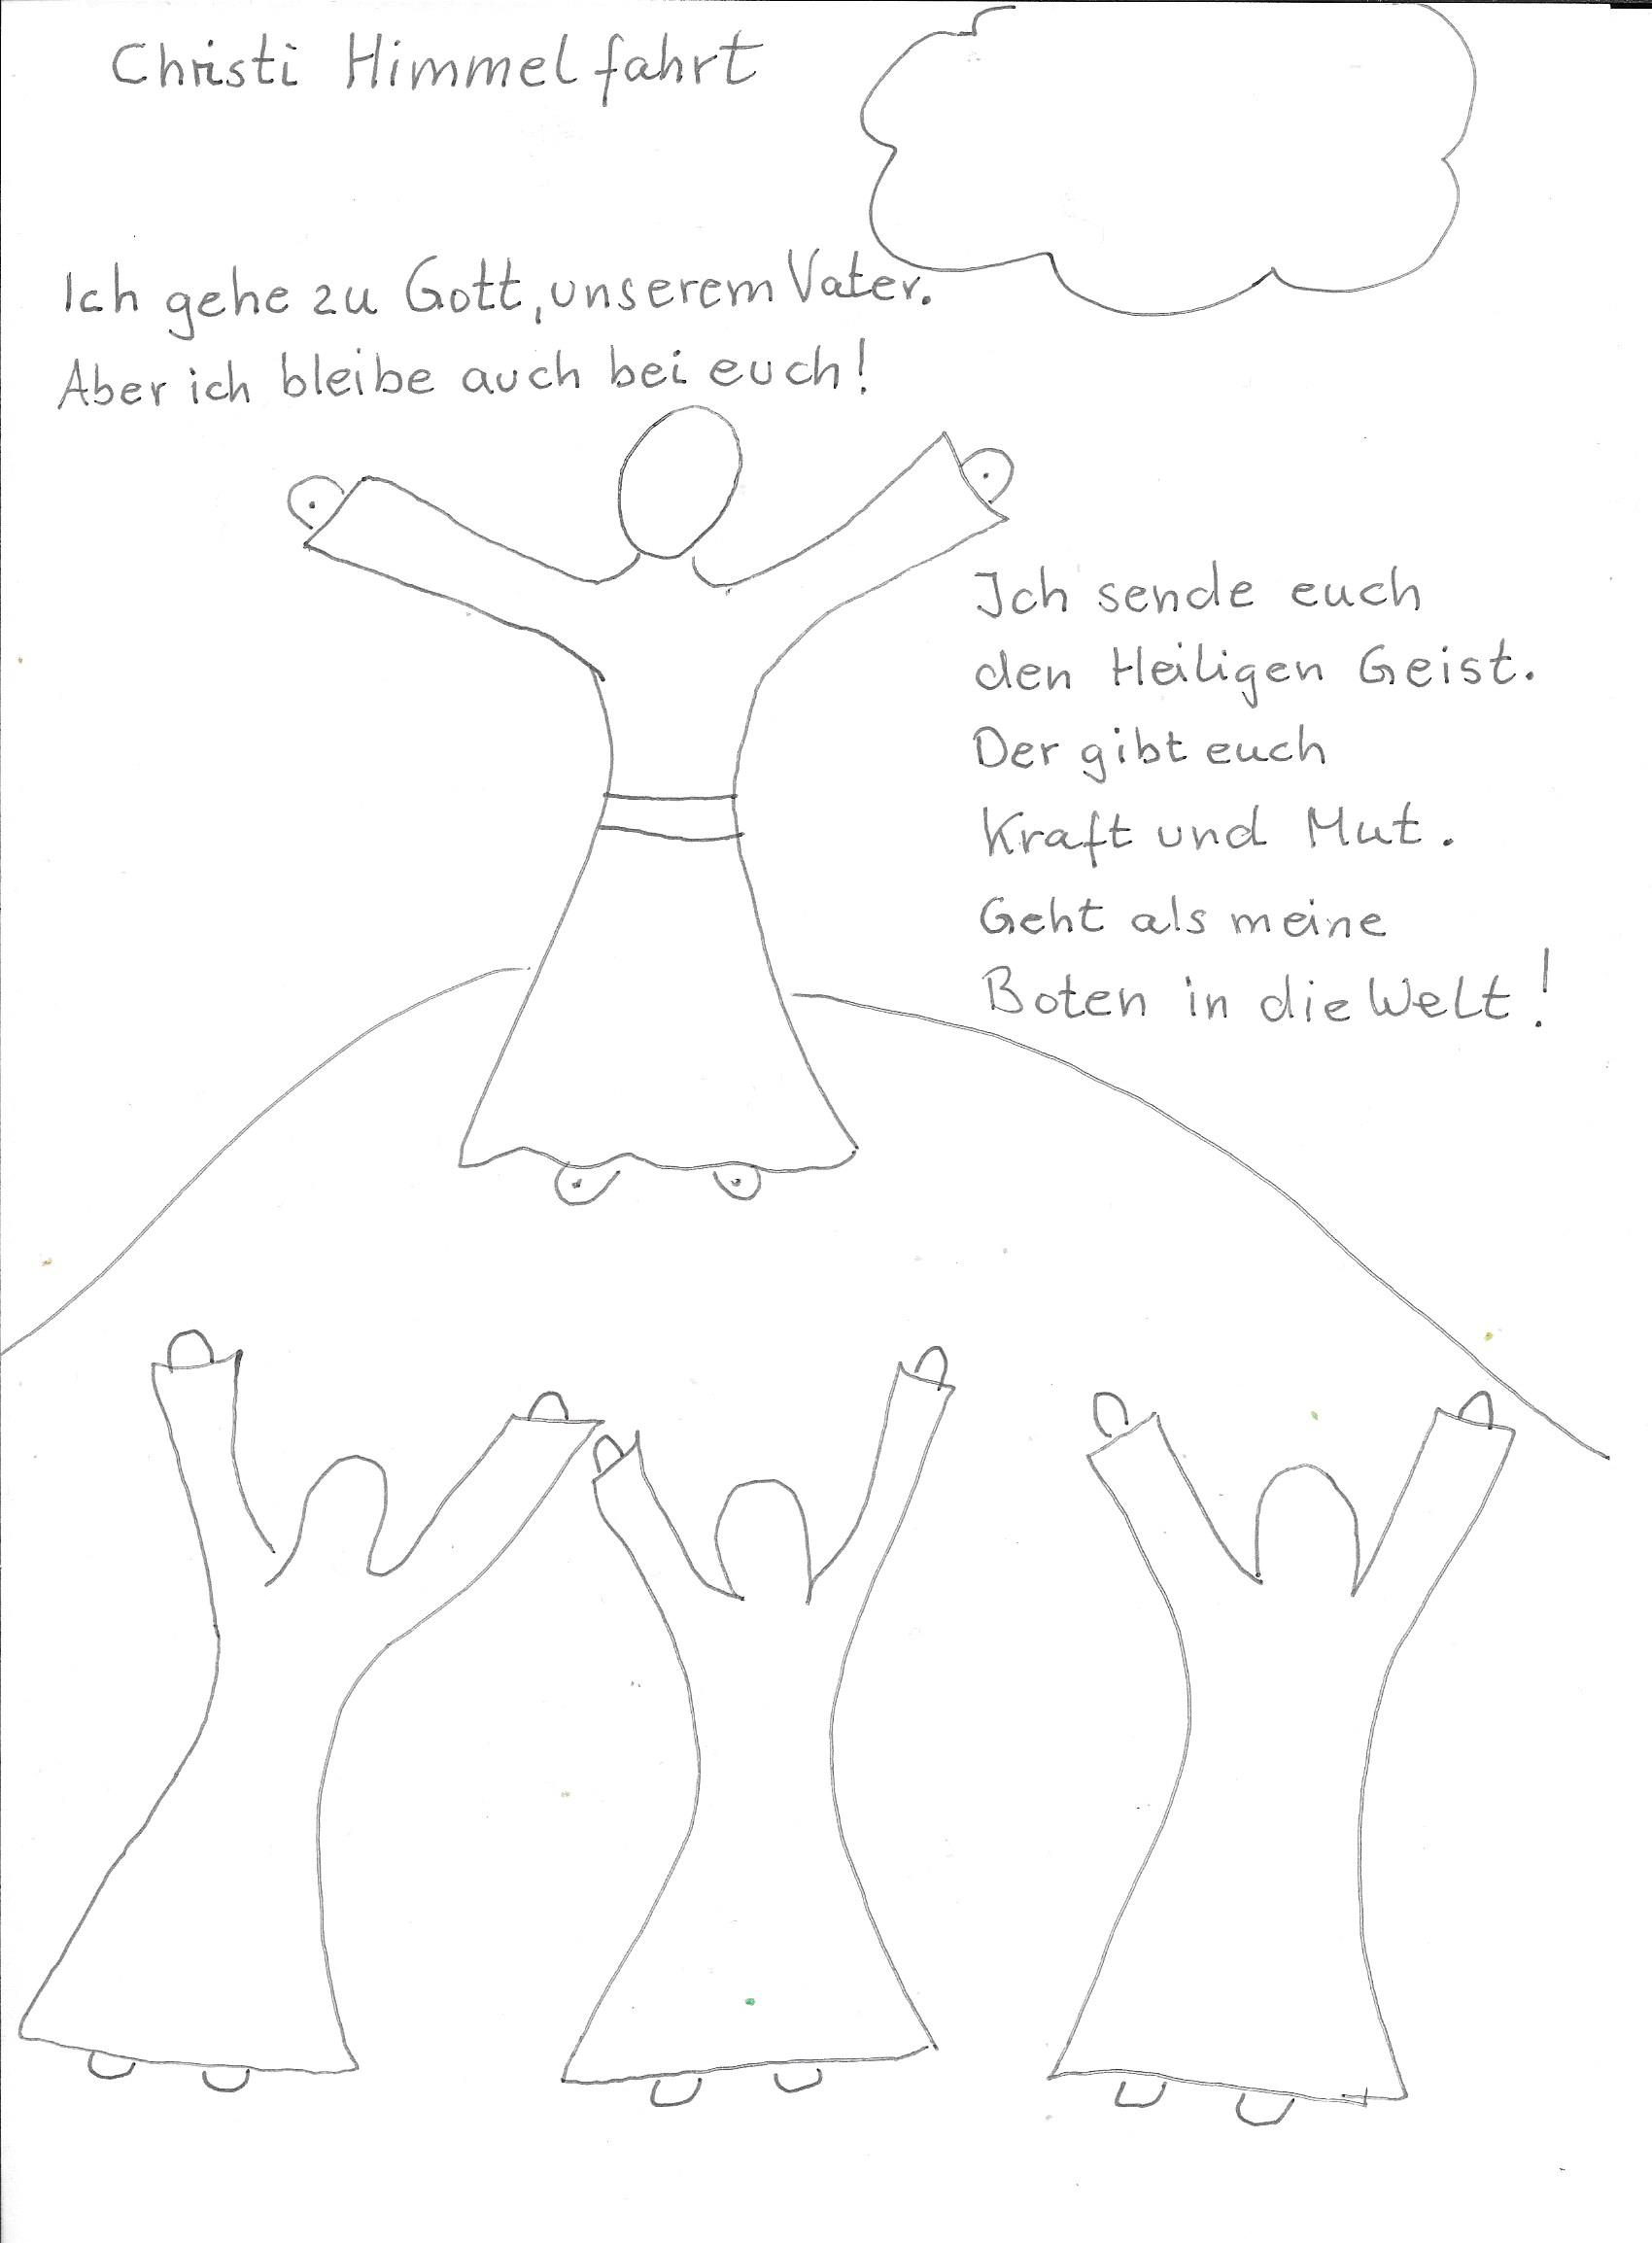 Christi Himmelfahrt
Ich gehe zu Gott, unserem Vater.
Aber ich bleibe auch bei euch!
Ich sende euch
den Heiligen Geist.
Der gibt euch
Kraft und Mut.
Geht als meine
Boten in die Welt!